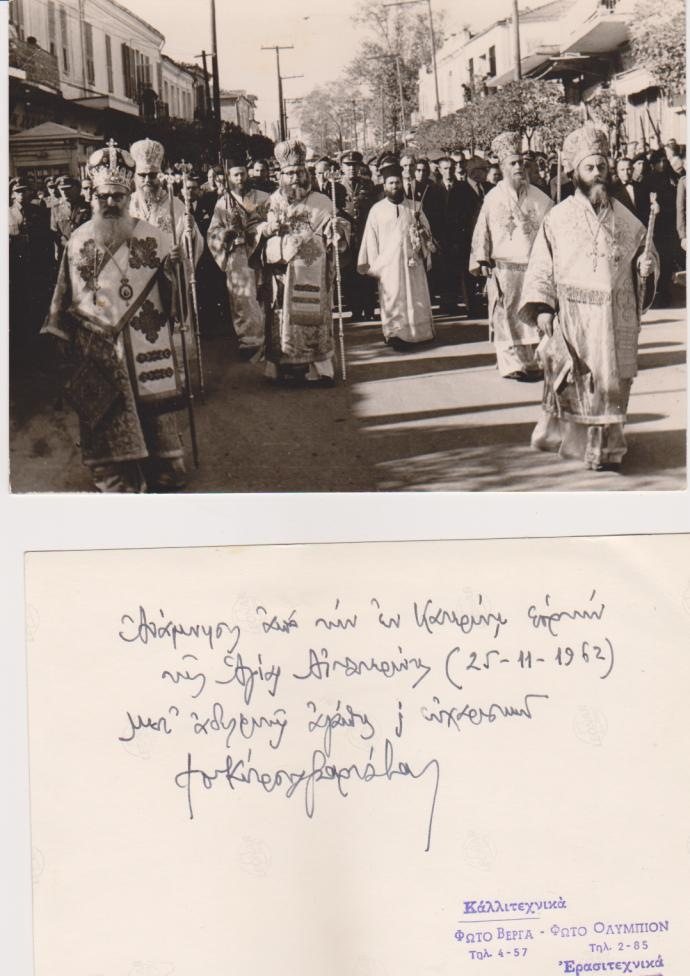 Ἀνάμνησις ἀπὸ τὴν ἐν Κατερίνῃ ἑορτὴν
τῆς Ἁγίας Αἰκατερίνης (25-11-1962)
μετ' ἀδελφικῆς ἀγάπης
Κίτρους Βαρνάβας
Κάλλιτεχνικὰ
ΦΩΤΟ ΒΕΡΓΑ - ΦΩΤΟ ΟΛΥΜΠΙΟΝ
Τηλ. 4-57 Τηλ. 2-85
Ἐρασιτεχνικά